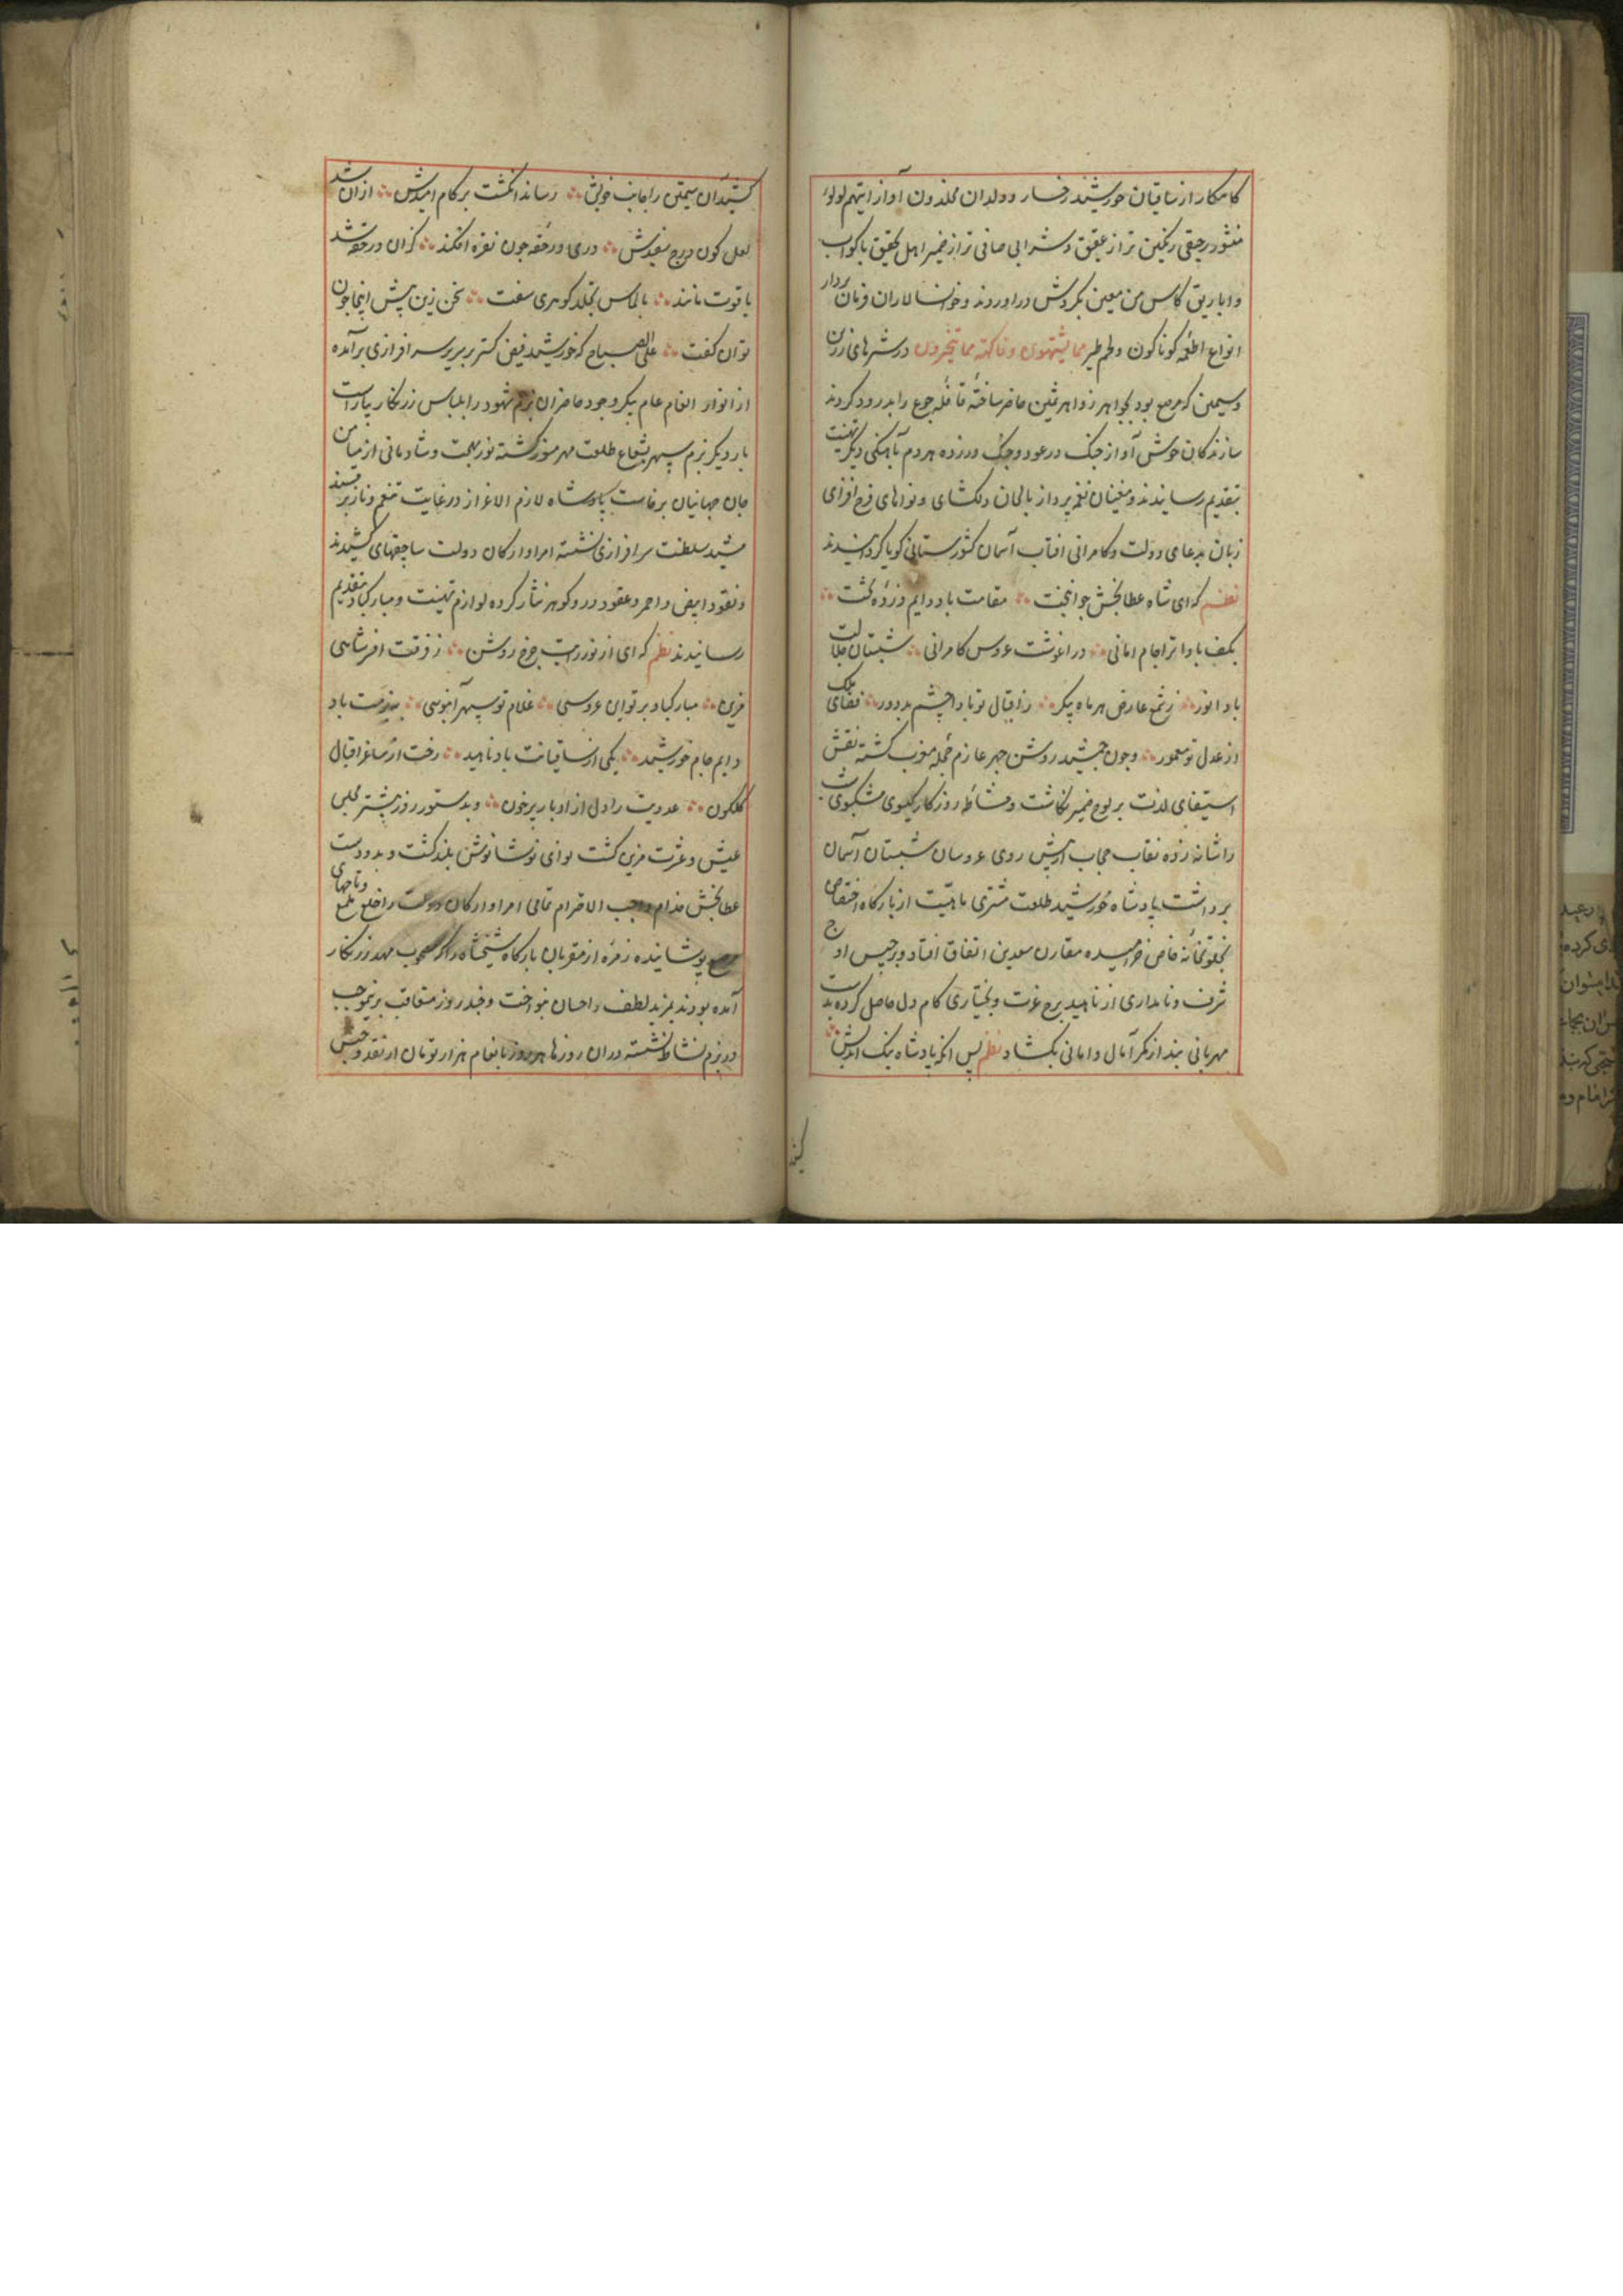 کامکار از ساقیان خورشید رخسار و ولدان مخلدون آواز اینهم لولوا
منثور رحیقی رنکین تر از عقیق و شرابی صافی تر از ضمیر اهل تحقیق باکواب
و اباریق کاس من معین بکردش در اوردند و خوانسالاران فرمان بردار
انواع اطعمه کوناکون و لحم طیر مما یشتهون و فاکهة مما یتخیرون در شرهای زرین
و سیمین که مرصع بود بجواهر زواهر ثمین حاضر ساخته قافله جوع را بدرود کردند
سازندکان خوش آواز چنک در عود و چنک در زده هر دم باهنکی دیکر تهنیت
بتقدیم رسانیدند و مغنیان نغمه پرداز بالحان دلکشای و نواهای فرح افزای
زبان بدعای دولت و کامرانی افتاب آسمان کشورستانی کویا کردانیدند
نظم که ای شاه عطابخش جوانبخت ∴ مقامت باد دایم ذروه تخت ∴
بکف بادا ترا جام امانی ∴ در اغوشت عروس کامرانی ∴ شبستان جلالت
باد انور ∴ ز شمع عارض هر ماه پیکر ∴ ز اقبال تو بادا چشم بد دور ∴ فضای ملک
از عدل تو معمور ∴ و چون جمشید روشن چهر عازم حجله مغرب کشته نقش
استیفای لذت بر لوح ضمیر نکاشت و مشاطه روزکار کیسوی مشکبوی شب
را شانه زده نقاب حجاب از پیش روی عروسان شبستان آسمان
برداشت پادشاه خورشید طلعت مشتری ماهیت از بارکاه اختصاص
بخلوتخانه خاص خرامیده مقارن سعدین اتفاق افتاد و برجیس اوج
شرف و نامداری از ناهید برج عزت و بختیاری کام دل حاصل کرده بدست
مهربانی بند از کمر آمال و امانی بکشاد نظم پس انکه پادشاه نیک اندیش ∴
کشید آن سیمتن را جانب خویش ∴ رساند انکشت بر کام امیدش ∴ ازان شد
لعل کون درج سفیدش ∴ دری در حقه چون نقره افکند ∴ کزان در حقه شد
یاقوت مانند ∴ بالماس تجلد کوهری سفت ∴ سخن زین پیش اینجا چون
توان کفت ∴ علی الصباح که خورشید فیض کستر بر سریر سرافرازی برآمده
از انوار انعام عام پیکر وجود حاضران بزم شهود را بلباس زرنکار بیاراست
بار دیکر بزم سپهر بشعاع طلعت مهر منور کشته نور بهجت و شادمانی از میان
جان جهانیان برخاست پادشاه لازم الاعزاز در غایت تنعم و ناز بر مسند
مشید سلطنت سرافرازی نشسته امرا و ارکان دولت ساچقهای کشیدند
و نقود ابیض و احمر و عقود در و کوهر نثار کرده لوازم تهنیت و مبارکباد بتقدیم
رسانیدند نظم که ای از نور رایت چرخ روشن ∴ ز فرقت افر شاهی
مزین ∴ مبارکباد بر تو این عروسی ∴ غلام تو سپهر آبنوسی ∴ بدستت باد
دایم جام خورشید ∴ یکی از ساقیانت باد ناهید ∴ رخت از ساغر اقبال
کلکون ∴ عدویت را دل از ادبار پرخون ∴ و بدستور روز پیشتر مجلس
عیش و عشرت مزین کشت نوای نوشانوش بلند کشت و بدو دست
عطابخش خدام واجب الاحترام تمامی امرا و ارکان دولت را خلع ملمع و تاجهای
مرصع پوشانیده زمره از مقربان بارکاه شیخشاه را که مصحوب مهد زرنکار
آمده بودند بمزید لطف و احسان بنواخت و چند روز متعاقب برینموجب
در بزم نشاط نشسته دران روزها هر روز بانعام هزار تومان از نقد و جنس